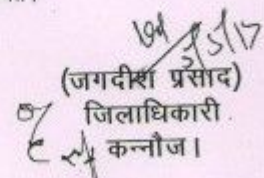 (जगदीश प्रसाद)
जिलाधिकारी
कन्नौज।